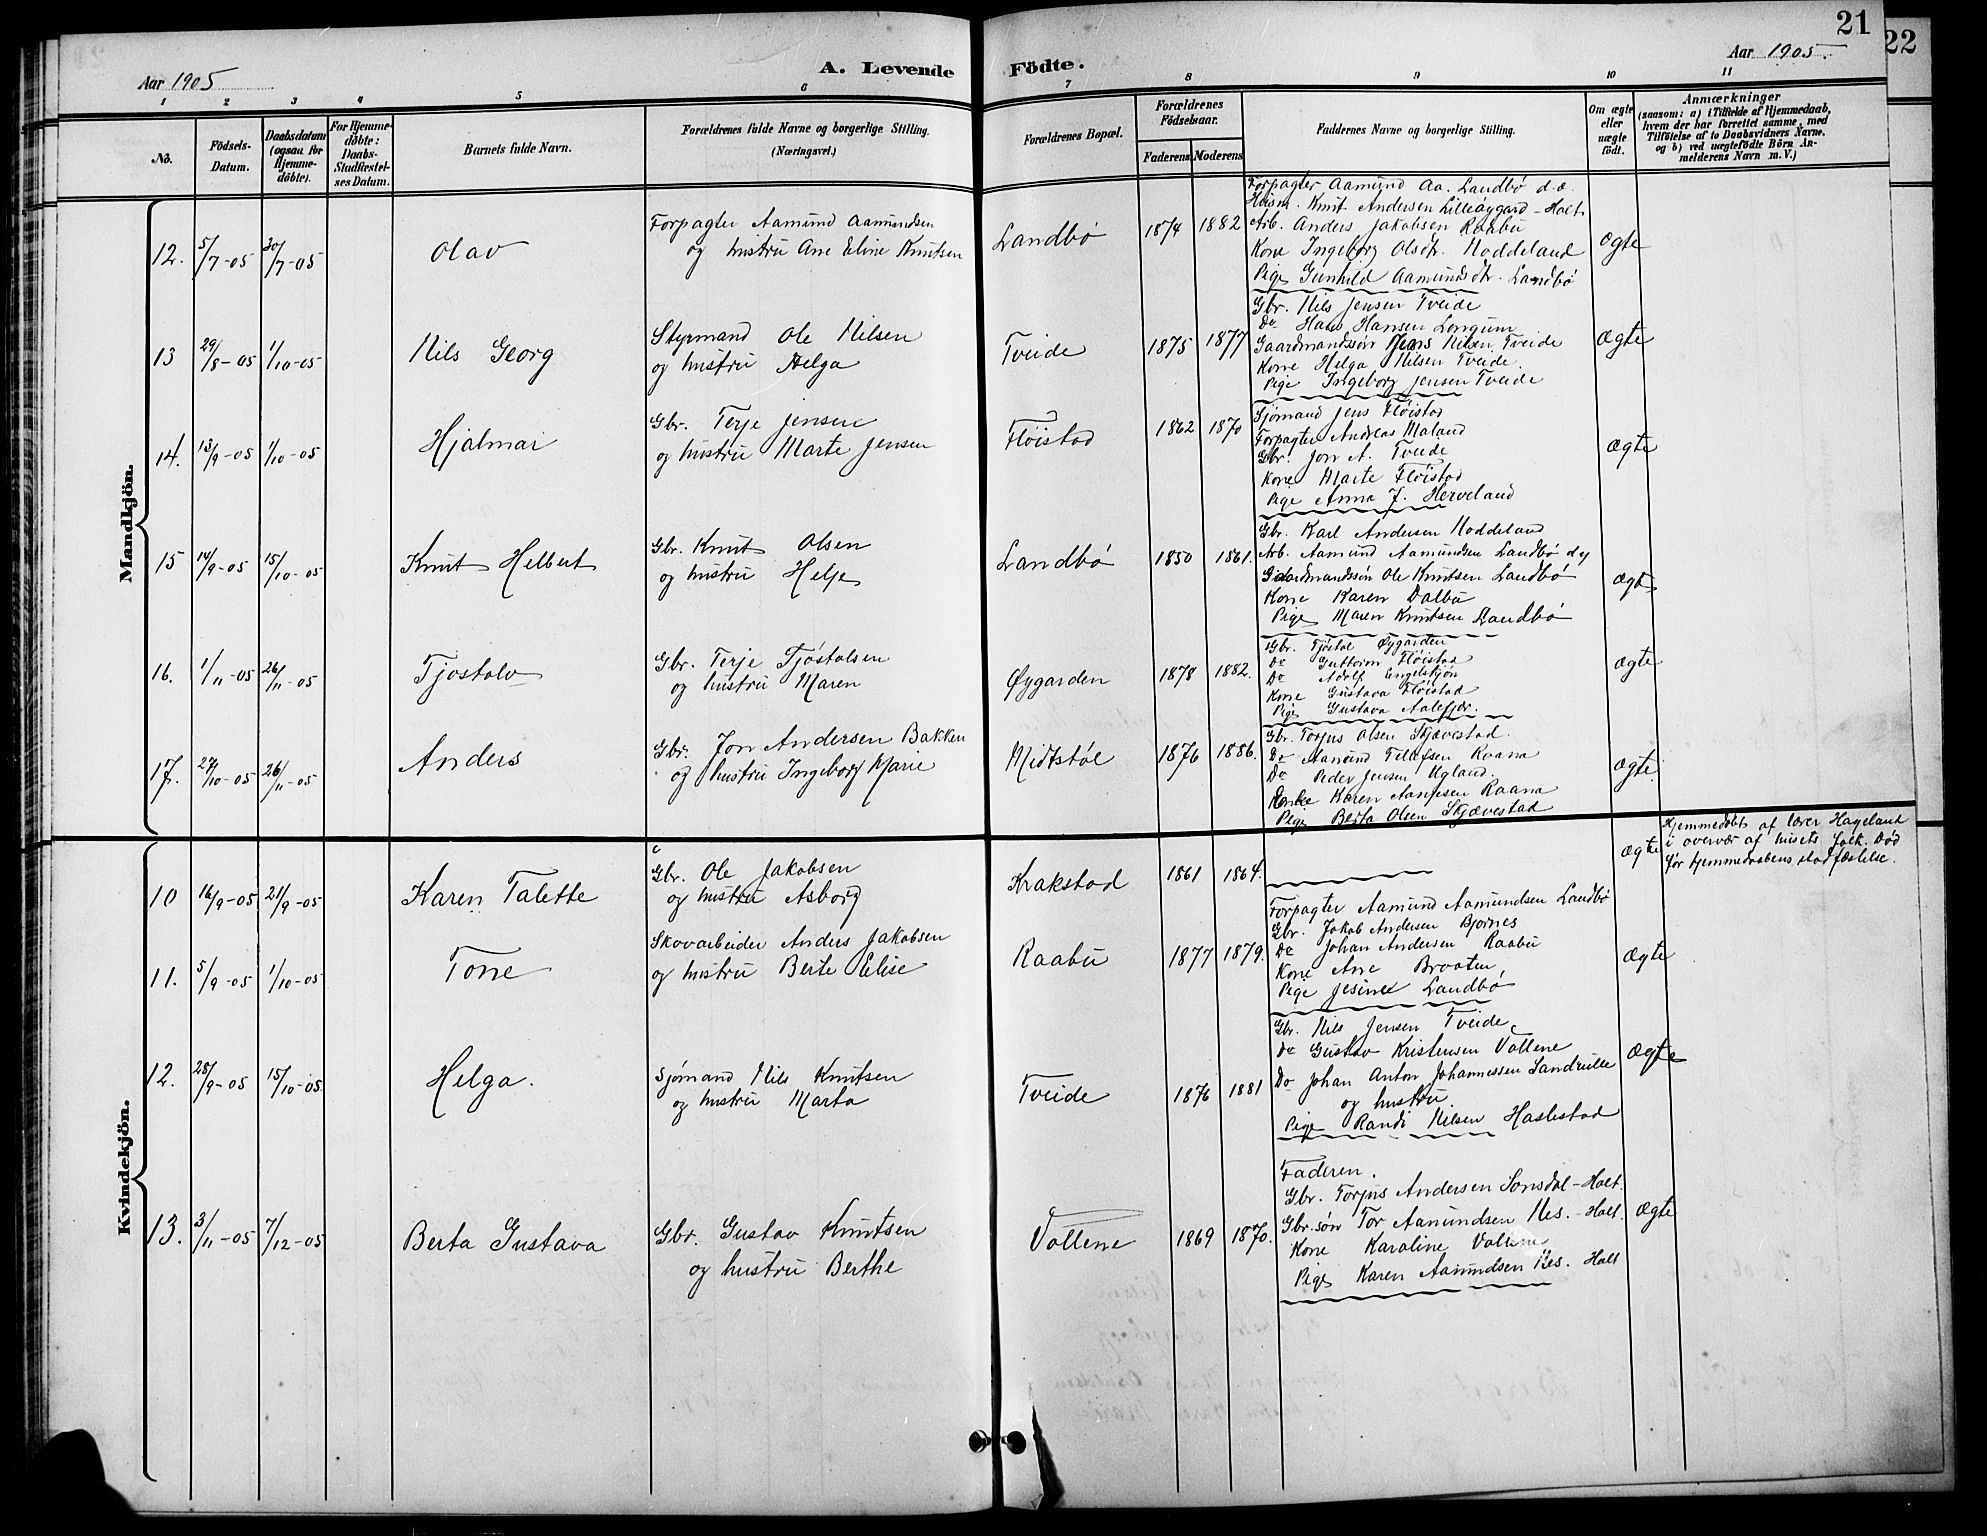 21
22
Aar 1905
A. Levende Födte.
Aar 1905.
1 2 3 4 5 6 7 8 9 10 11
No.
Födsels-Datum.
Daabsdatum (ogsaa for Hjemme-döbte).
For Hjemme-döbte: Daabs-Stadfæstel-ses Datum.
Barnets fulde Navn.
Forældrenes fulde Navne og borgerlige Stilling. (Næringsvei.)
Forældrenes Bopæl.
Forældrenes Födselsaar.
Faderens Moderens
Faddernes Navne og borgerlige Stilling.
Om ægte eller uægte födt.
Anmærkninger
(saasom: a) i Tilfælde af Hjemmedaab,
hvem der har forrettet samme, med
Tilföielse af to Daabsvidners Navne,
og b) ved uægtefödte Börn An-
melderens Navn m. V.)
Mandkjön.
12. 5/7-05 30/7-05 Olav
Forpagter Aamund Aamundsen
og hustru Ane Eline Knutsen
Landbø 1874 1882
Forpagter Aamund Aa. Landbø d.æ.
Husm. Knut Andersen Lilleøygard-Holt
Arb. Anders Jakobsen Raabu
Kone Ingeborg Olsdtr. Noddeland
Pige Gunhild Aamundsdtr. Landbø
Ægte
13 29/8-05 1/10-05 Nils Georg
Styrmand Ole Nilsen
og hustru Helga
Tveide 1875 1877
Gbr. Nils Jensen Tveide
Do Hans Hansen Longum
Gaardmandssøn Jens Nilsen Tveide
Kone Helga Nilsen Tveide.
Pige Ingeborg Jensen Tveide
Ægte
14. 13/9-05 1/10-05 Hjalmar
Gbr. Terje Jensen
og hustru Marte Jensen
Fløistad 1862 1870
Sjømand Jens Fløistad
Forpagter Andreas Maland
Gbr. Jon A. Tveide
Kone Marte Fløistad
Pige Anna J. Herveland
Ægte
15 14/9-05 15/10-05 Knut Helbert
Gbr. Knut Olsen
og hustru Helje
Landbø 1850 1861.
Gbr. Karl Andersen Noddeland
Arb. Aamund Aamundsen Landbø d.y
Gaardmandssøn Ole Knutsen Landbø
Kone Karen Dalbu
Pige Maren Knutsen Landbø
Ægte
16. 1/11-05 26/11-05 Tjøstolv
Gbr. Terje Tjøstolsen
og hustru Maren
Øygarden 1878 1882.
Gbr. Tjøstol Øygarden
Do Guttorm Fløistad
Do Adolf Engelstjøn
Kone Gustava Fløistad
Pige Gustava Aalefjær.
Ægte
17. 27/10-05 26/11-05 Anders
Gbr. Jon Andersen Bakken
og hustru Ingeborg Marie
Midtstøl 1876 1886.
Gbr. Torjus Olsen Skjævestad.
Do Aamund Tellefsen Raana
Do Peder Jensen Ugland.
Karen Raana
Pige Berta Olsen Skjævestad
Ægte.
Kvindekjön.
10 16/9-05 21/9-05 Karen Talette
Gbr. Ole Jakobsen
og hustru Asborg
Krakstad 1861 1864.
Ægte
Hjemmedøbt af lærer Hageland
i overvær af husets folk. Død
før hjemmedaabens stadfæstelse.
11. 5/9-05 1/10-05 Tone
Skovarbeider Anders Jakobsen
og hustru Berte Elise
Raabu 1877 1879.
Forpagter Aamund Aamundsen Landbø
Gbr. Jakob Andersen Bjørnes
Do Johan Andersen Raabu
Kone Ane Braaten
Pige Jesine Landbø
Ægte
12. 28/9-05 15/10-05 Helga.
Sjømand Nils Knutsen
og hustru Marta
Tveide 1876 1881
Gbr. Nils Jensen Tveide
do Gustav Kristensen Vollene
Do Johan Anton Johannessen Sandrulle
og hustru.
Pige Randi Nilsen Haslestad
Ægte
13. 3/11-05 7/12-05 Berta Gustava
Gbr. Gustav Knutsen
og hustru Berthe
Vollene 1869 1870.
Faderen.
Gbr. Torjus Andersen Sonsdal-Holt.
Gbr.søn Tor Aamundsen Nes.-Holt.
Kone Karoline Vollene
Pige Karen Aamundsen Nes. Holt
Ægte